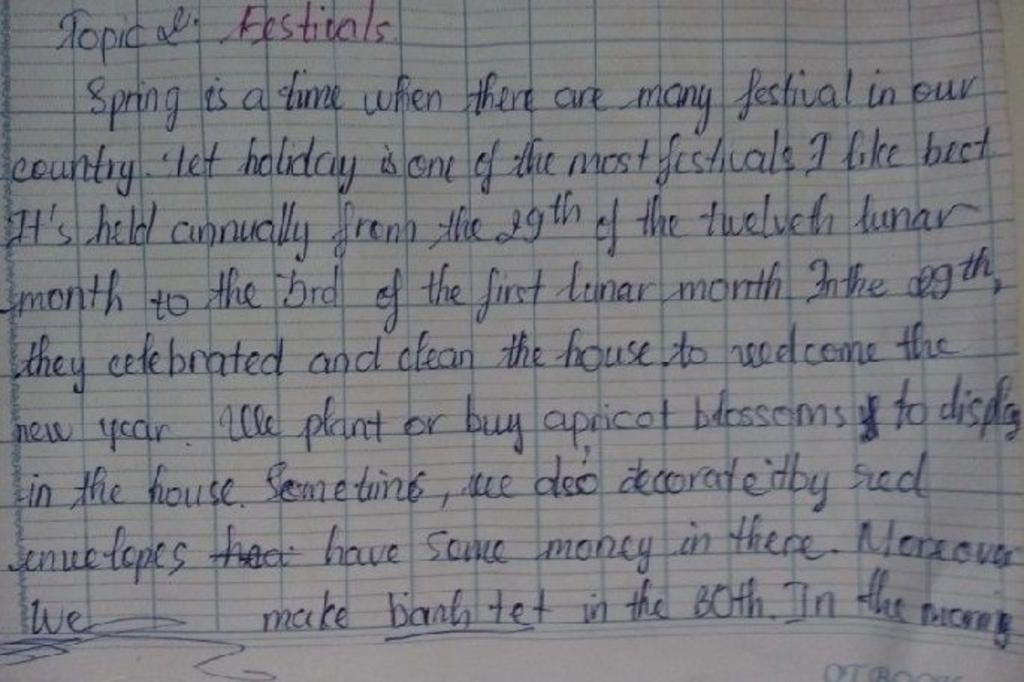 Topic 2: Festivals.
Spring is a time when there are many festival in our
country. Tet holiday is one of the most festivals I like bect
It's held annually from the 29th of the twelveth lunar
month to the 3rd of the first lunar month In the 29th,
they celebrated and clean the house to welcome the
new year. We plant or buy apricot blossoms to display
in the house. Sometime, we decorate it by red
envelopes have some money in there. Moreover
We make banh tet in the 30th. In the